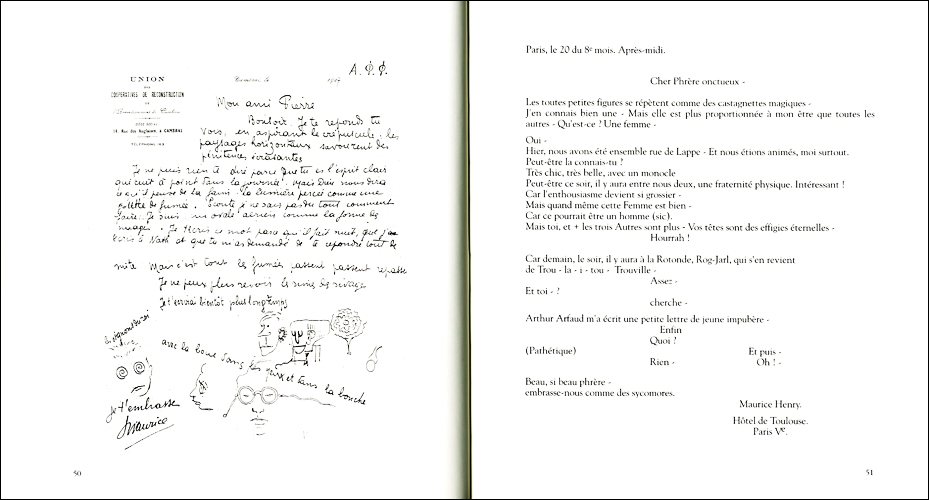 A.
UNION
DES
COOPÉRATIVES DE RECONSTRUCTION
DE
L'Arrondissement de Cambrai
SIÈGE SOCIAL
14 Rue des Anglaises, A CAMBRAI
TÉLÉPHONE
Cambrai, le 192
Mon ami Pierre
Bonsoir. Je te réponds tu
vois, en aspirant le crépuscule. les
paysages horizontaux savourent des
pénitences
Je ne puis rien te dire parce que tu es l'esprit clair
qui cuit à point dans la journée. Mais Dieu nous dira
ce qu'il pense de la faim. La dernière percée comme une
de fumée. Écoute je ne sais pas du tout comment
faire. Je suis un ovale aérien comme la forme des
nuages. Je t'écris ce mot parce qu'il fait nuit, que j'ai
écris à Nath et que tu m'as demandé de te répondre tout de
suite Mais c'est tout les fumées passent passent repasse
Je ne peux plus revoir le rivage
Je t'écrirai bientôt plus longtemps
avec la boue dans les yeux et dans la bouche
Je t'embrasse
Maurice
50
Paris, le 20 du 8e mois. Après-midi.
Cher Phrère onctueux -
Les toutes petites figures se répètent comme des castagnettes magiques -
J'en connais bien une - Mais elle est plus proportionnée à mon être que toutes les
autres - Qu'est-ce ! Une femme -
Oui -
Hier, nous avons été ensemble rue de Lappe - Et nous étions animés, moi surtout.
Peut-être la connais-tu !
Très chic, très belle, avec un monocle
Peut-être ce soir, il y aura entre nous deux, une fraternité physique. Intéressant !
Car l'enthousiasme devient si grossier -
Mais quand même cette Femme est bien -
Car ce pourrait être un homme (sic).
Mais toi, et + les trois Autres sont plus - Vos têtes sont des effigies éternelles -
Hourrah !
Car demain, le soir, il y aura à la Rotonde, Rog-Jarl, qui s'en revient
de Trou - la - ï - tou - Trouville -
Assez -
Et toi - ?
cherche -
Arthur Arfaud m'a écrit une petite lettre de jeune impubère -
Enfin
Quoi ?
(Pathétique) Et puis -
Rien - Oh ! -
Beau, si beau phrère -
embrasse-nous comme des sycomores.
Maurice Henry.
Hôtel de Toulouse.
Paris Ve.
51